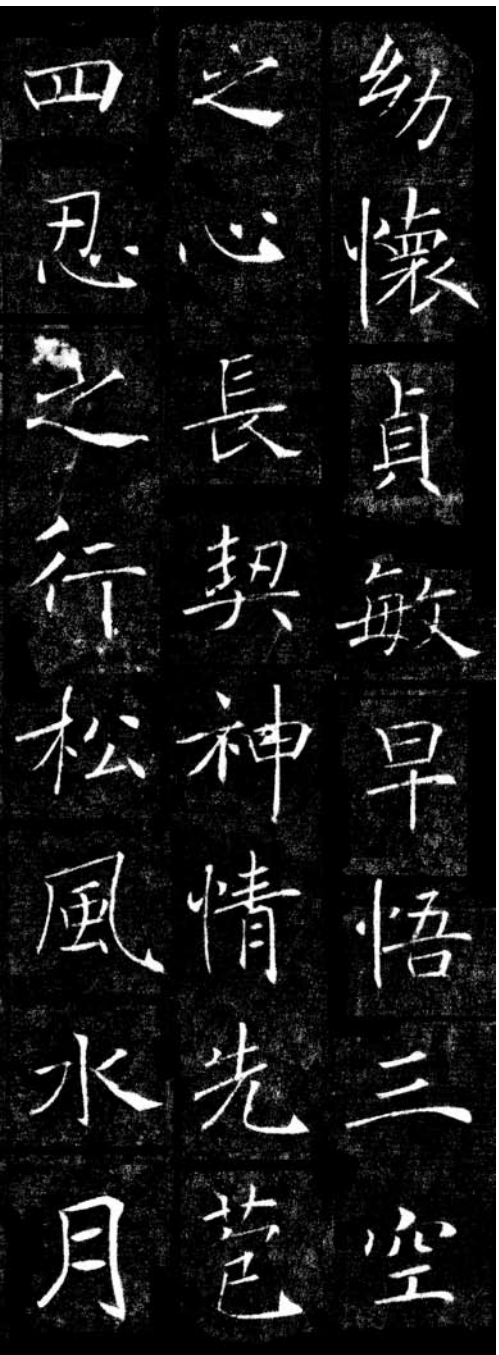 幼懷貞敏早悟三空
之心長契神情先苞
四忍之行松風水月